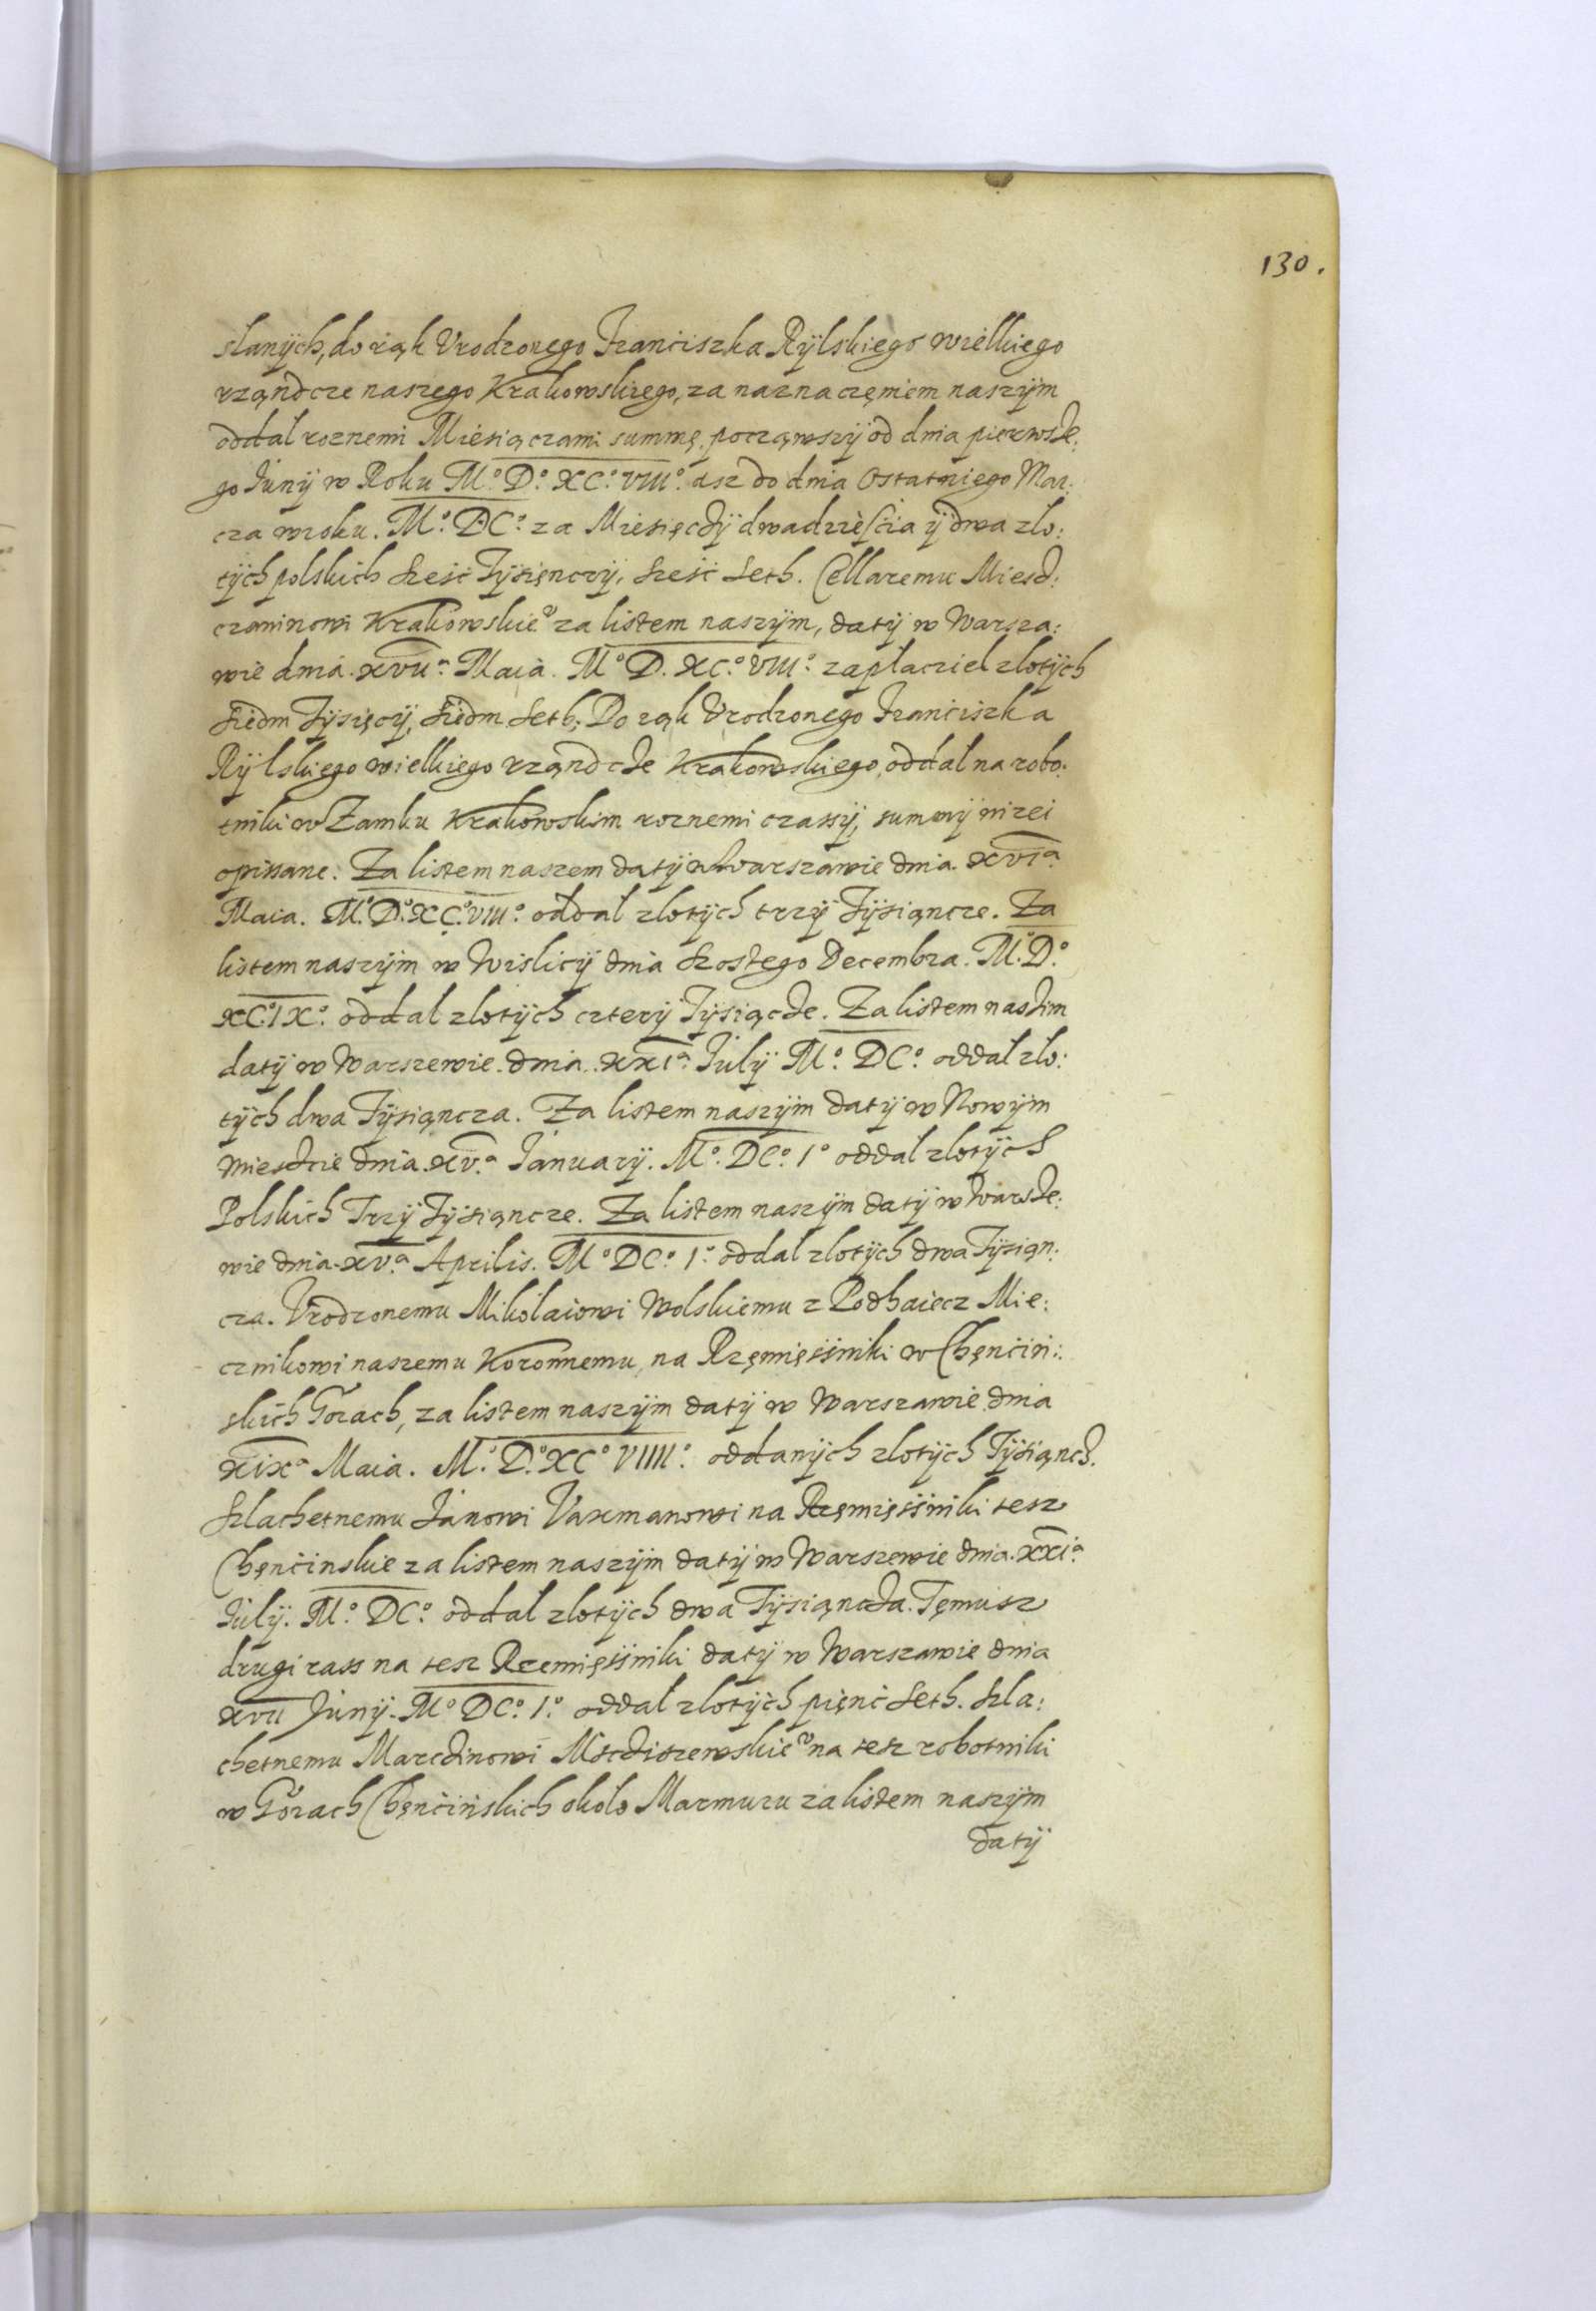 130.
slanÿch, do rąk Vrodzonego Franciszka Rÿlskiego wielkiego
rządcze naszego Krakowskiego, za naznaczęniem naszÿm
oddal roznemi Miesiączami summę, począwszÿ od dnia pierwsze:
go Junÿ w Roku M.° D.° XC.° VIII.° asz do dnia Ostatniego Mar:
cza wroku. M.° DC.° za Miesięczÿ dwadzieścia ÿ dwa zlo:
tÿch polskich szesć Tÿsięnczÿ, szesć seth. Cellaremu Miesz:
czaninowi Krakowskie° za listem naszÿm, datÿ w Warsza:
wie dnia. XVII.ª Maia. M.° D. XC.° VIII.° zaplacziel zlotÿch
siedm Tÿsięcÿ, siedm seth; Do rąk Vrodzonego Franciszka
Rÿlskiego wielkiego rządcze Krakowskiego, oddal na robo:
tniki w Zamku Krakowskim roznemi czassÿ, summÿ nizei
opissane. Za listem naszem datÿ w Warszawie dnia. XVI.ª
Maia. M.° D.° XC.° VIII.° oddal zlotÿch trzÿ Tÿsiąncze. Za
listem naszÿm w Wislicÿ dnia szostego Decembra. M.° D.°
XC.° IX.° oddal zlotÿch czterÿ Tÿsiącze. Za listem naszim
datÿ w Warszewie. dnia. XXI.ª Julÿ M.° DC.° oddal zlo:
tÿch dwa Tÿsiąncza. Za listem naszÿm datÿ w Nowÿm
miesczie dnia. XV.ª Januarÿ. M.° DC.° I° oddal zlotÿch
Polskich Trzÿ Tÿsiąncze. Za listem naszÿm datÿ w Warsze:
wie dnia. XV.ª Aprilis. M.° DC.° I.° oddal zlotÿch dwa Tÿsiąn:
cza. Vrodzonemu Mikolaiowi Wolskiemu z Podhaiecz Mie:
cznikowi naszemu Koronnemu, na Rzęmięsśniki w Chęncin:
skich Gorach, za listem naszÿm datÿ w Warszawie dnia
XIX.ª Maia. M.° D.° XC.° VIIII.° oddanÿch zlotÿch Tÿsiącz.
Szlachetnemu Janowi Vaxmanowi na Rzęmięsśniki tesz
Chęncinskie za listem naszÿm datÿ w Warszewie dnia. XXI.ª
Julÿ. M.° DC.° oddal zlotÿch dwa Tÿsiąncza. Tęmusz
drugi rass na tesz Rzemięsśniki datÿ w Warszawie dnia
XVII Junÿ. M.° DC.° I.° oddal zlotÿch pięnć seth. Szla:
chetnemu Marczinowi Mscziszewskie° na tesz robotniki
w Górach Chęncinskich okolo Marmuru za listem naszÿm
datÿ